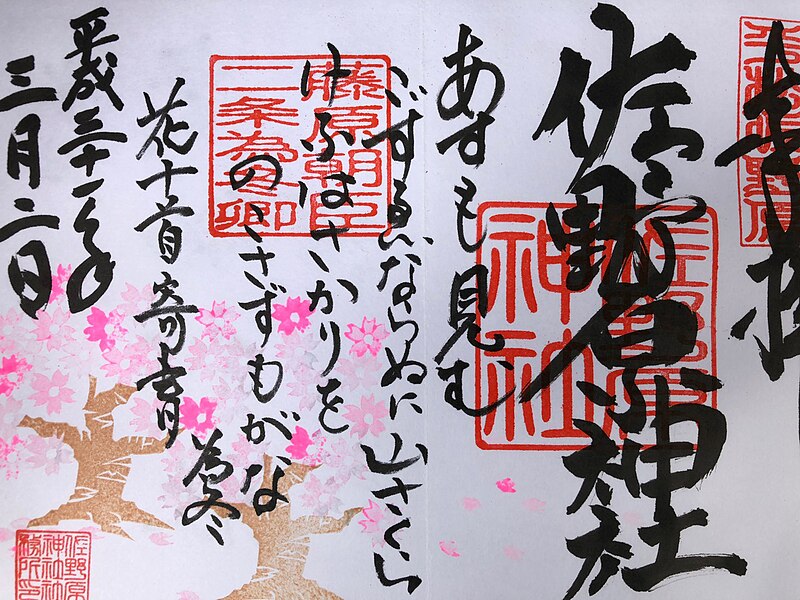 奉拝
佐野原神社
佐野原神社
あすも見む
こずゑならぬに山さくら
けふはさかりを
のこさずもがな
為冬
藤原朝臣
二条為冬卿
花十首寄書
平成三十一年
三月二日
佐野原
神社社
務所印